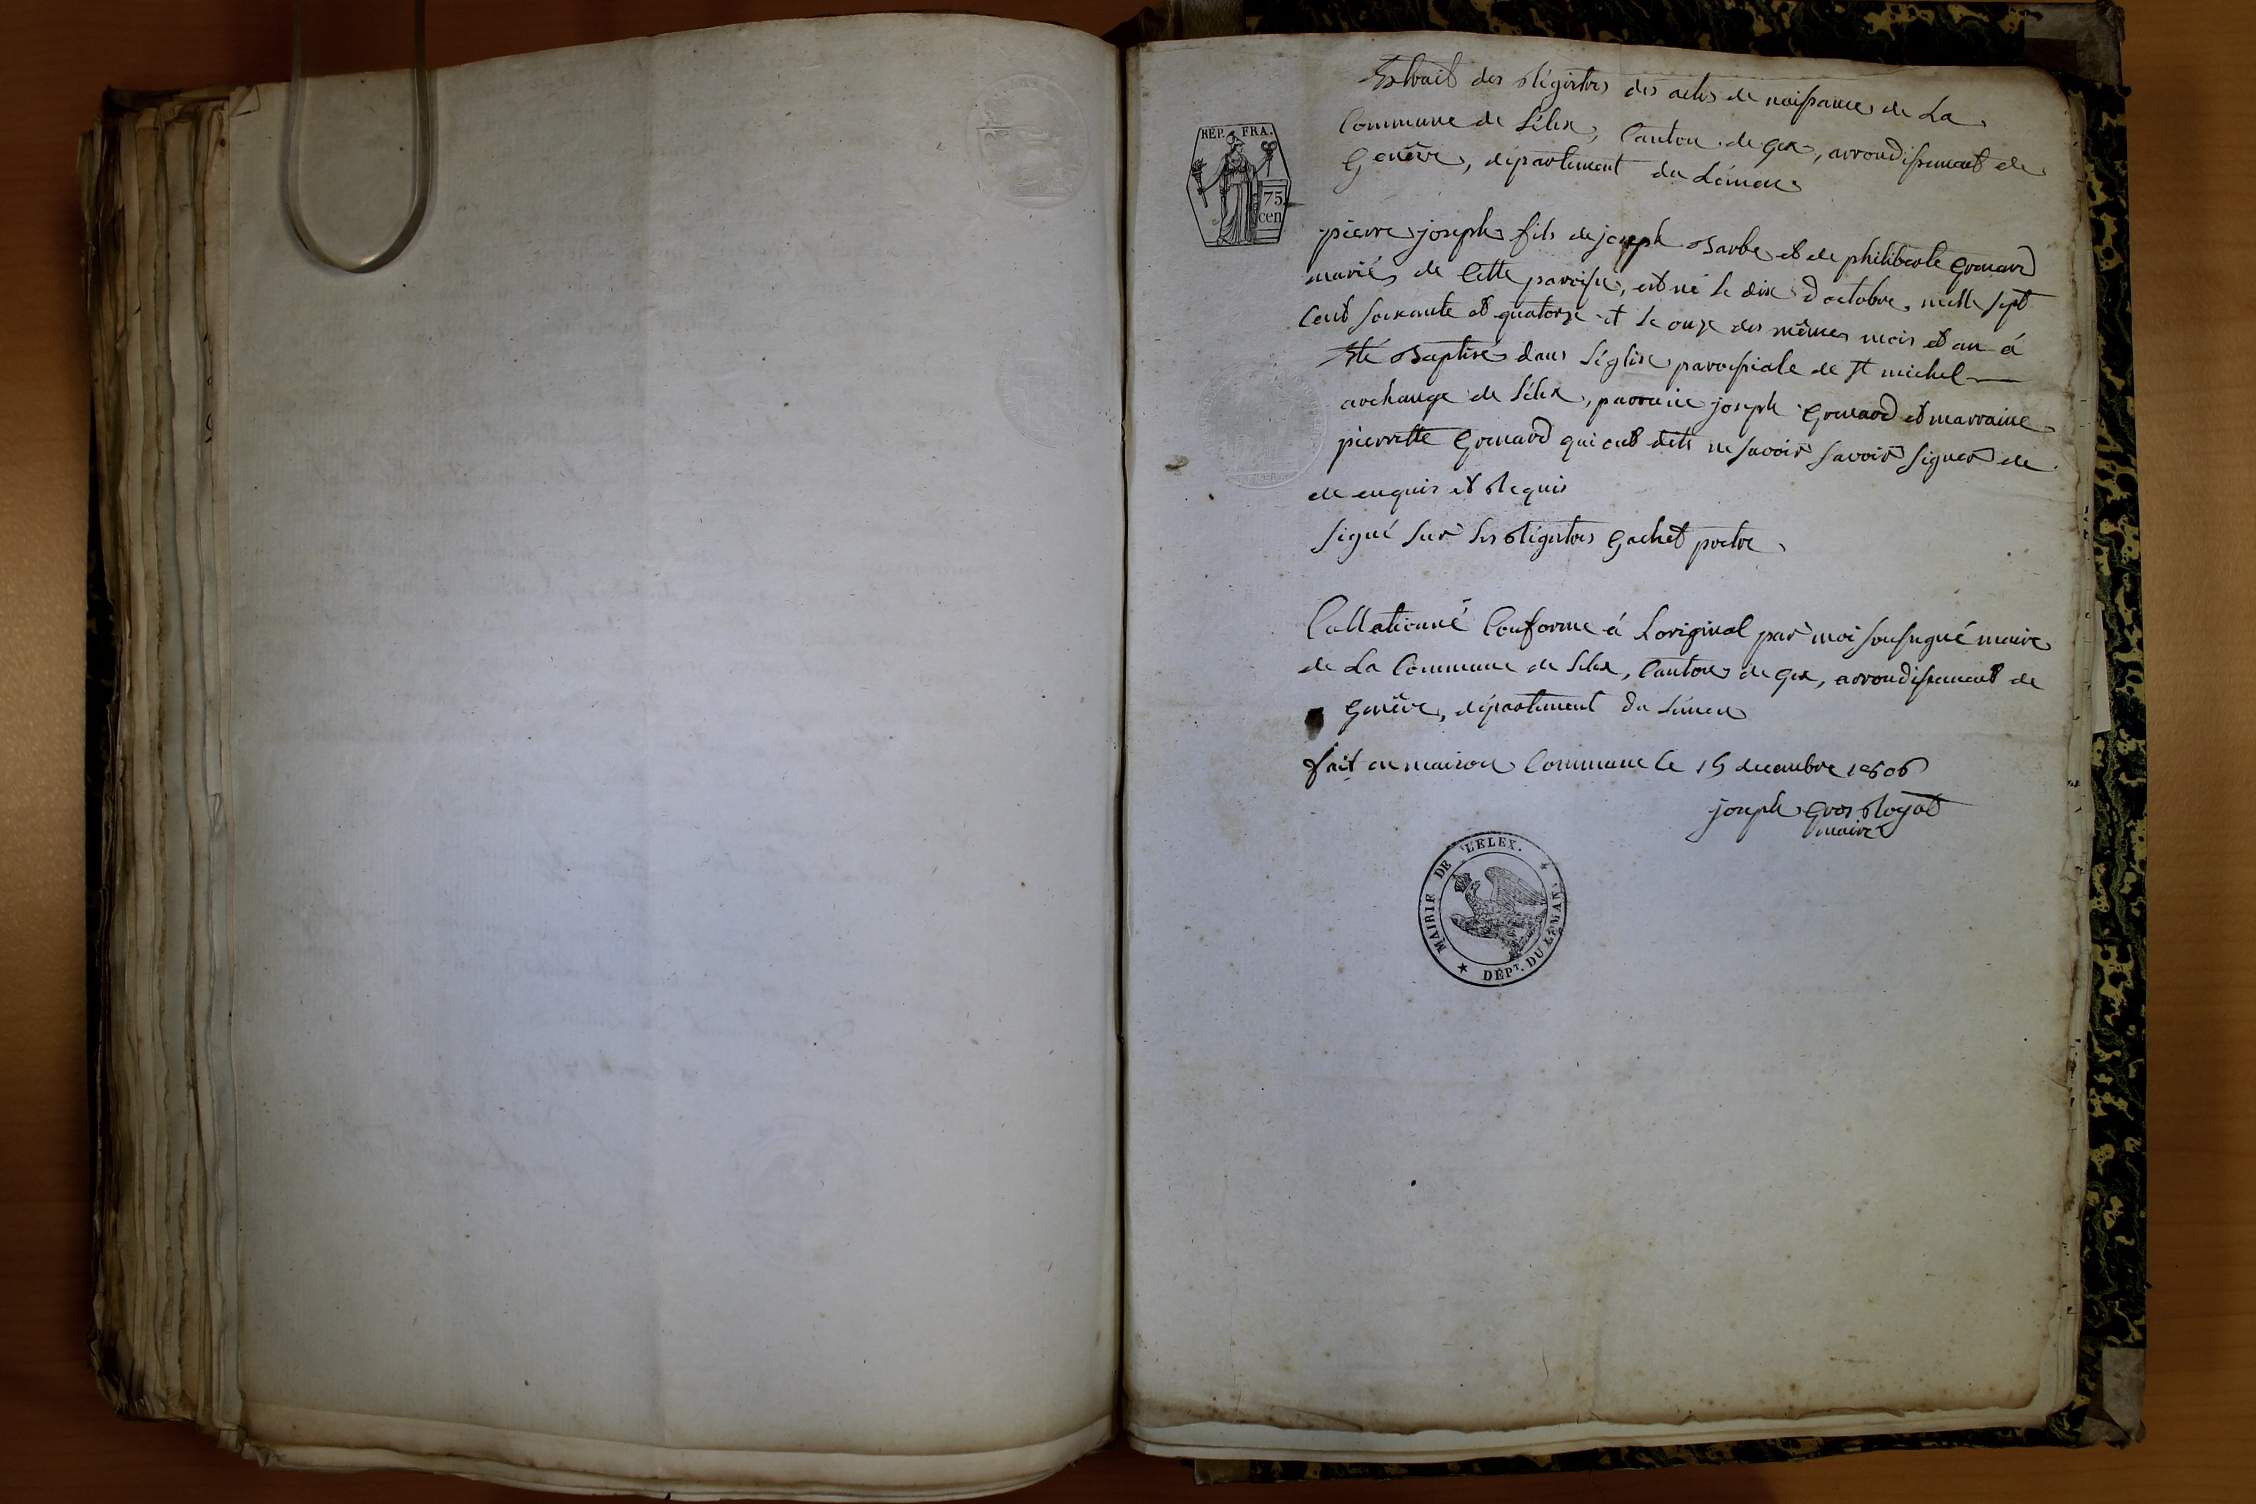 REP. FRA.
75
cen
Extrait des Régistres des actes de naissance de La
Commune de Lélex, Canton de Gex, arrondissement de
Genêve, département du Léman
pierre joseph fils de joseph Barbe et de philiberte Grenard
mariés de Cette paroisse, est né le dix d'octobre, mille sept
Cent soixante et quatorze et le onze des mêmes mois et an á
Eté Baptisé dans L'église paroissiale de St michel
archange de Lélex, parrain joseph Grenard et marraine
pierrette Grenard qui ont dits ne savoir savoir signer de
de enquis et Requis
signé sur les Régistres Gachet prètre
Collationné Conforme á Loriginal par moi soussigné maire
de La Commune de Lélex, Canton de Gex, arrondissement de
Genêve, département du Léman
fait en maison Commune le 15 decembre 1806
joseph Gros Royat
maire
MAIRIE DE LÉLEX.
DÉPT. DU LÉMAN.